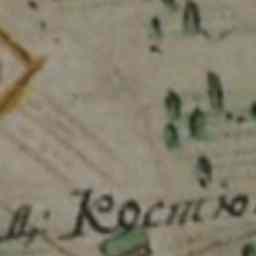 Д: Костю